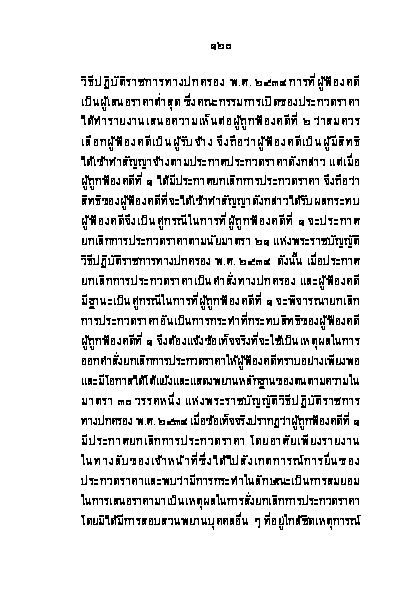 ๑๒๐
วิธีปฏิบัติราชการทางปกครอง พ.ศ. ๒๕๓๙ การที่ผู้ฟ้องคดี
เป็นผู้เสนอราคาต่ำสุด ซึ่งคณะกรรมการเปิดซองประกวดราคา
ได้ทำรายงานเสนอความเห็นต่อผู้ถูกฟ้องคดีที่ ๒ ว่าสมควร
เลือกผู้ฟ้องคดีเป็นผู้รับจ้าง จึงถือว่าผู้ฟ้องคดีเป็นผู้มีสิทธิ
ได้เข้าทำสัญญาจ้างตามประกาศประกวดราคาดังกล่าว แต่เมื่อ
ผู้ถูกฟ้องคดีที่ ๑ ได้มีประกาศยกเลิกการประกวดราคา จึงถือว่า
สิทธิของผู้ฟ้องคดีที่จะได้เข้าทำสัญญาดังกล่าวได้รับผลกระทบ
ผู้ฟ้องคดีจึงเป็นคู่กรณีในการที่ผู้ถูกฟ้องคดีที่ ๑ จะประกาศ
ยกเลิกการประกวดราคาตามนัยมาตรา ๒๑ แห่งพระราชบัญญัติ
วิธีปฏิบัติราชการทางปกครอง พ.ศ. ๒๕๓๙ ดังนั้น เมื่อประกาศ
ยกเลิกการประกวดราคาเป็นคำสั่งทางปกครอง และผู้ฟ้องคดี
มีฐานะเป็นคู่กรณีในการที่ผู้ถูกฟ้องคดีที่ ๑ จะพิจารณายกเลิก
การประกวดราคาอันเป็นการกระทำที่กระทบสิทธิของผู้ฟ้องคดี
ผู้ถูกฟ้องคดีที่ ๑ จึงต้องแจ้งข้อเท็จจริงที่จะใช้เป็นเหตุผลในการ
ออกคำสั่งยกเลิกการประกวดราคาให้ผู้ฟ้องคดีทราบอย่างเพียงพอ
และมีโอกาสได้โต้แย้งและแสดงพยานหลักฐานของตนตามความใน
มาตรา ๓๐ วรรคหนึ่ง แห่งพระราชบัญญัติวิธีปฏิบัติราชการ
ทางปกครอง พ.ศ. ๒๕๓๙ เมื่อข้อเท็จจริงปรากฏว่าผู้ถูกฟ้องคดีที่ ๑
มีประกาศยกเลิกการประกวดราคา โดยอาศัยเพียงรายงาน
ในทางลับของเจ้าหน้าที่ซึ่งได้ไปสังเกตการณ์การยื่นซอง
ประกวดราคาและพบว่ามีการกระทำในลักษณะเป็นการสมยอม
ในการเสนอราคามาเป็นเหตุผลในการสั่งยกเลิกการประกวดราคา
โดยมิได้มีการสอบสวนพยานบุคคลอื่น ๆ ที่อยู่ใกล้ชิดเหตุการณ์